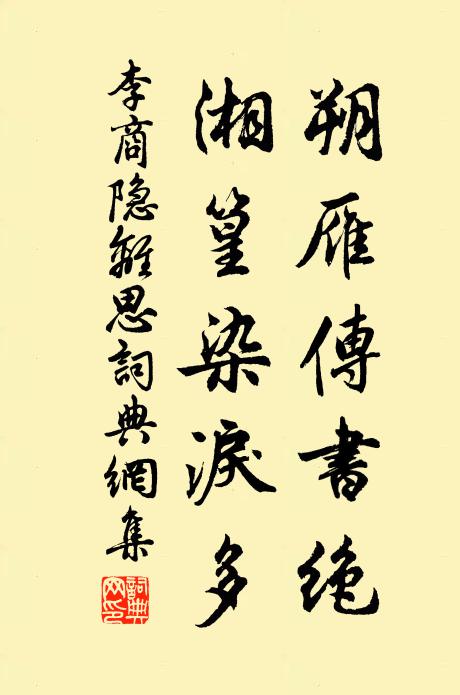 朔雁傳書绝
湘篁染淚多
李商隐離思詞典網集
詞典
网印